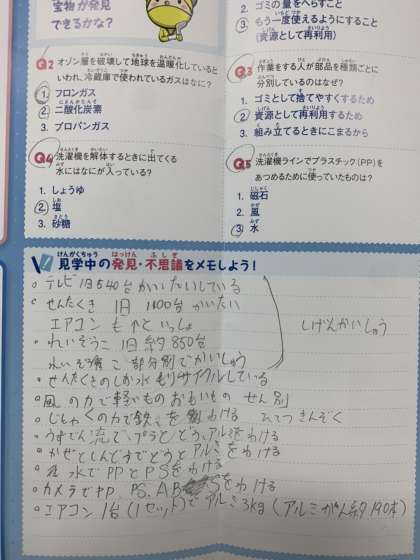 "宝物"が発見
できるかな?
2. ゴミの量をへらすこと
3. もう一度使えるようにすること
(資源として再利用)
Q2 オゾン層を破壊して地球を温暖化していると
いわれ、冷蔵庫で使われているガスはなに?
1. フロンガス
2. 二酸化炭素
3. プロパンガス
Q3 作業をする人が部品を種類ごとに
分別しているのはなぜ?
1. ゴミとして捨てやすくするため
2. 資源として再利用するため
3. 組み立てるときにこまるから
Q4 洗濯機を解体するときに出てくる
水にはなにが入っている?
1. しょうゆ
2. 塩
3. 砂糖
Q5 洗濯機ラインでプラスチック(PP)を
あつめるために使っていたものは?
1. 磁石
2. 風
3. 水
見学中の発見・不思議をメモしよう!
テレビ 1日540台かいたいしている
せんたくき 1日 1100台 かいたい
エアコン も ↑と いっしょ
れいぞうこ 1日 約850台
しげんかいしゅう
こ 部分別でかいしゅう
せんたくきのしお水もリサイクルしている
風の力で軽いもの おもいもの せん別
じしゃくの力で鉄を わける ひてつきんぞく
アルミをわける
かぜとしんどうでどうとアルミをわける
水でPPとPSをわける
カメラでPP PS, AB Sをわける
エアコン 1台(1セット)で アルミ3kg (アルミかん約190本)